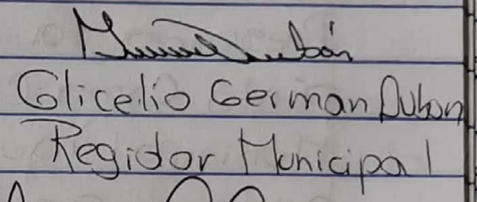 Glicelio German Dubon
Regidor Municipal